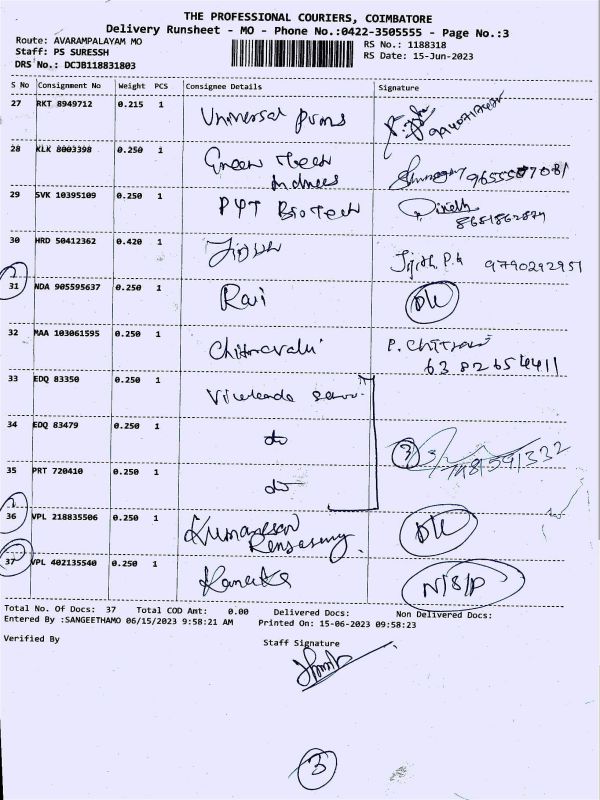 THE PROFESSIONAL COURIERS, COIMBATORE
Delivery Runsheet - MO - Phone No.:0422-3505555 - Page No.:3
Route: AVARAMPALAYAM MO
Staff: PS SURESSH
DRS No.: DCJB118831803
RS No.: 1188318
RS Date: 15-Jun-2023
S No Consignment No Weight PCS Consignee Details Signature
27 RKT 8949712 0.215 1 Universal
28 KLK 8003398 0.250 1 Green Tech
29 SVK 10395109 0.250 1 PYT BioTech
8651862874
30 HRD 50412362 0.420 1 Jijith P.k 9790292951
31 NDA 905595637 0.250 1 Ravi DL
32 MAA 103061595 0.250 1 Chitravalli P. Chitra
6382654411
33 EDQ 83350 0.250 1
34 EDQ 83479 0.250 1 do 3
35 PRT 720410 0.250 1 do
1
36 VPL 218835506 0.250 1 Kumaresan DL
37 VPL 402135540 0.250 1 Kanaka N/S/P
Total No. Of Docs: 37 Total COD Amt: 0.00 Delivered Docs: Non Delivered Docs:
Entered By :SANGEETHAMO 06/15/2023 9:58:21 AM Printed On: 15-06-2023 09:58:23
Verified By Staff Signature
3